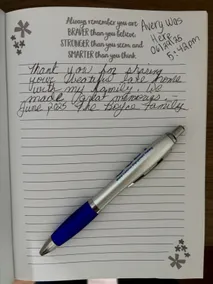 Always remember you are
BRAVER than you believe
STRONGER than you seem and
SMARTER than you think
Avery Was
Here
5:42pm
Thank you for sharing
your beautiful lake home
with my family. We
made great memories
June 2025 The Family